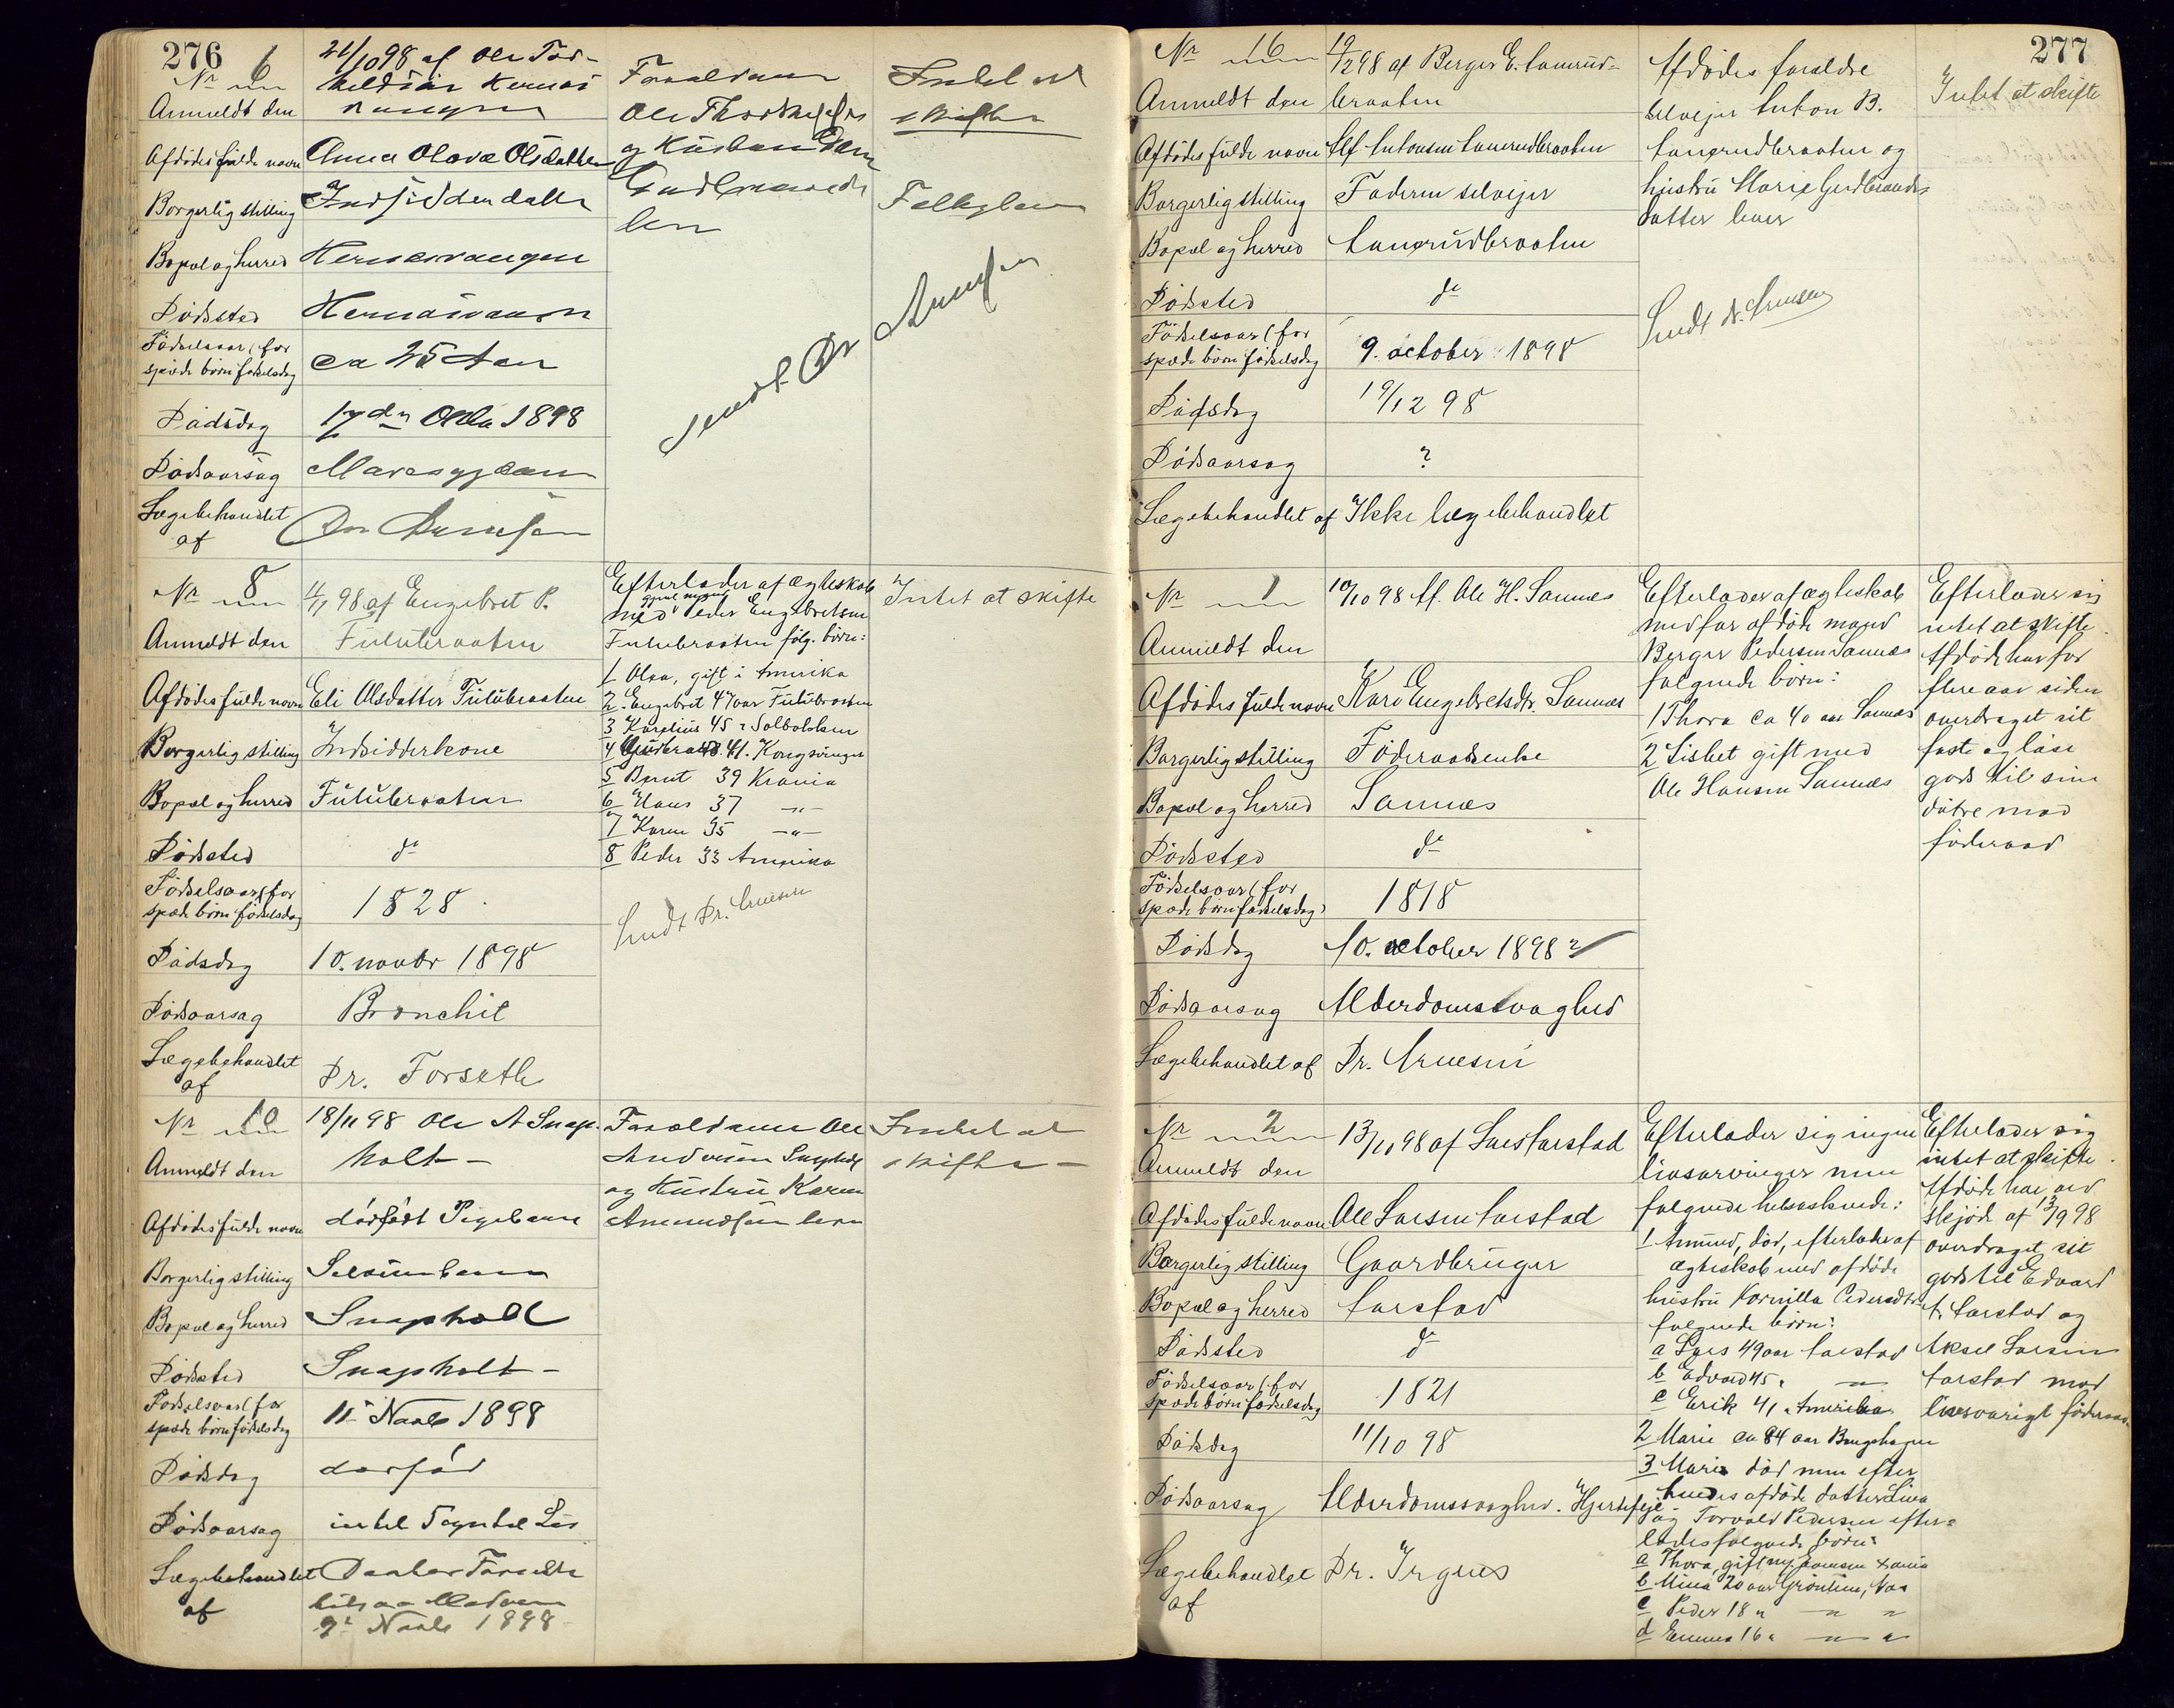 276
Nr 6
21/10 98 af Ole Tor-
keldsen Hernæs
vangen
Anmeldt den
Afdødes fulde navn Anna Olava Olsdatter
Borgerlig stilling Indsidderdatter
Bopæl og herred Hernæsvangen
Dødssted Hernæsvangen
Fødselsaar (for
spæde børn fødselsdag ca 25 Aar
Dødsdag 17de Oktbr 1898
Dødsaarsag Mavesygdom
Lægebehandlet
af Dr Arnesen
Forældrene
Ole Thorkeldsen
og Hustru
lever
Intet at
skifte
Sendt Dr Arnesen
Nr 8
11/11 98 af Engebret P.
Anmeldt den Fulubraaten
Afdødes fulde navn Eli Olsdatter Fulubraaten
Borgerlig stilling Indsidderkone
Bopæl og herred Fulubraaten
Dødssted do
Fødselsaar (for
spæde børn fødselsdag 1828
Dødsdag 10. novbr 1898
Dødsaarsag Bronchit
Lægebehandlet
af Dr. Forseth
Efterlader af ægteskab
med Peder Engebretsen
Fulubraaten følg. børn:
1 Olea, gift i Amerika
2. Engebret 47 aar Fulubraaten
3 Karelius 45 " Solbakken
4 Gudbrand 41. Kongsvinger
5 Bernt 39 Krania
6 Hans 37 —"—
7 Karen 35 —"—
8 Peder 33 Amerika
Sendt Dr. Arnesen
Intet at skifte
Nr 10
18/11 98 Ole A Snap-
Anmeldt den holt —
Afdødes fulde navn dødfødt Pigebarn
Borgerlig stilling Selveierbarn
Bopæl og herred Snapholt
Dødssted Snapholt —
Fødselsaar (for
spæde børn fødselsdag 11 Novb 1898
Dødsdag dødfød
Dødsaarsag intet Tegn til Liv
Lægebehandlet Doktor Forseth
af
Novb 1898
Forældrene Ole
Andersen Snapholt
og Hustru Karen
Amundsen lever
Intet at
skifte —
277
Nr 16
19/12 98 af Berger E. Langrud-
Anmeldt den braaten
Afdødes fulde navn Alf Antonsen Langrudbraaten
Borgerlig stilling Faderen selvejer
Bopæl og herred Langrudbraaten
Dødssted do
Fødselsaar (for
spæde børn fødselsdag 9. october 1898
Dødsdag 19/12 98
Dødsaarsag ?
Lægebehandlet af Ikke lægebehandlet
Afdødes forældre
selvejer Anton B.
Langrudbraaten og
hustru Marie Gudbrands-
datter lever
Sendt dr. Arnesen
Intet at skifte
Nr 1
10/10 98 af Ole H. Sannæs
Anmeldt den
Afdødes fulde navn Kari Engebretsdtr. Sannæs
Borgerlig stilling Føderaadsenke
Bopæl og herred Sannæs
Dødssted do
Fødselsaar (for
spæde børn fødselsdag) 1818
Dødsdag 10. october 1898
Dødsaarsag Alderdomssvaghed
Lægebehandlet af Dr. Arnesen
Efterlader af ægteskab
med før afdøde mand
Berger Pedersen Sannæs
følgende børn:
1 Thora ca 40 aar Sannæs
2 Lisbet gift med
Ole Hansen Sannæs
Efterlader sig
intet at skifte.
Afdøde har for
flere aar siden
overdraget sit
faste og løse
gods til sine
døtre mod
føderaad
Nr 2
13/10 98 af Lars Tarstad
Anmeldt den
Afdødes fulde navn Ole Larsen Tarstad
Borgerlig stilling Gaardbruger
Bopæl og herred Tarstad
Dødssted do
Fødselsaar (for
spæde børn fødselsdag 1821
Dødsdag 11/10 98
Dødsaarsag Alderdomssvaghed. Hjertefejl
Lægebehandlet Dr. Irgens
af
Efterlader sig ingen
livsarvinger men
følgende helsøskende:
1 Amund, død, efterlader af
ægteskab med afdøde
hustru Kornilla Pedersdtr
følgende børn:
a Lars 49 aar Tarstad
b Edvard 45 " —"—
c Erik 41 " Amerika
2 Marie ca 84 aar
3 Mari død men efter
hendes afdøde datter Lina
og Torvald Pedersen efter-
lades følgende børn:
a Thora, gift
b Mina 20 aar Grønlien, Aas
c Peder 18 " —"— "
d Emma 16 " —"— "
Efterlader sig
intet at skifte.
Afdøde har ved
skjøde af 13/9 98
overdraget sit
gods til Edvard
A. Tarstad og
Aksel Larsen
Tarstad mod
livsvarigt føderaad